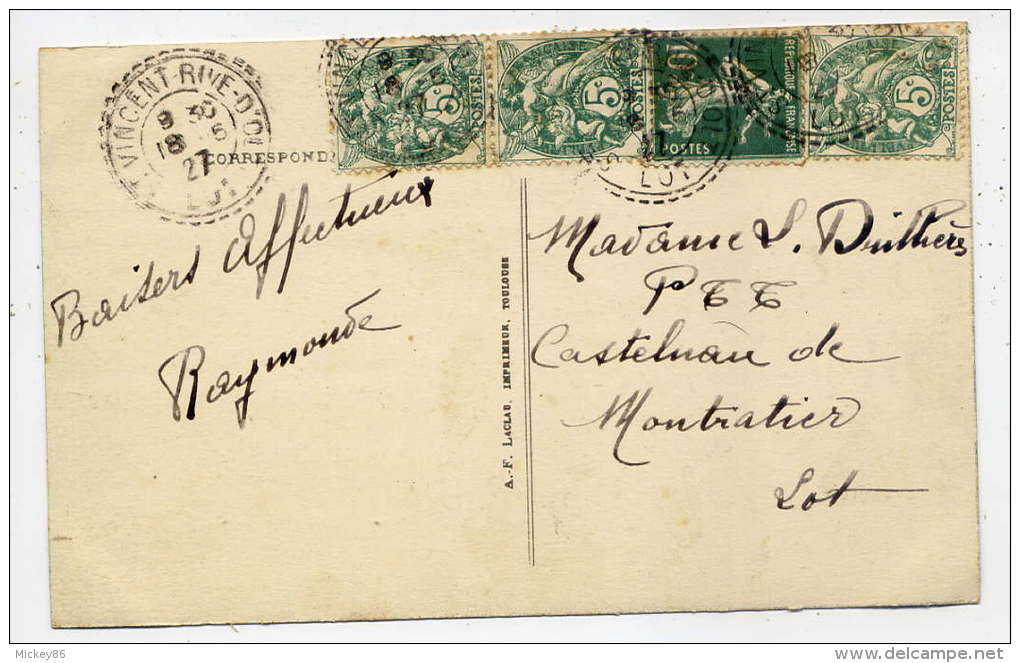 ST VINCENT-RIVE-D'OLT
9 30
18 5
27
LOT
CORRESPONDANCE
5c
POSTES
5c
POSTES
10c
POSTES
REPUBLIQUE FRANÇAISE
5c
POSTES
LOT
LOT
Baisers Affectueux
Raymonde
A.-F. LACLAU, IMPRIMEUR, TOULOUSE
Madame L.
P T T
Castelnau de
Montratier
Lot
Mickey86
www.delcampe.net